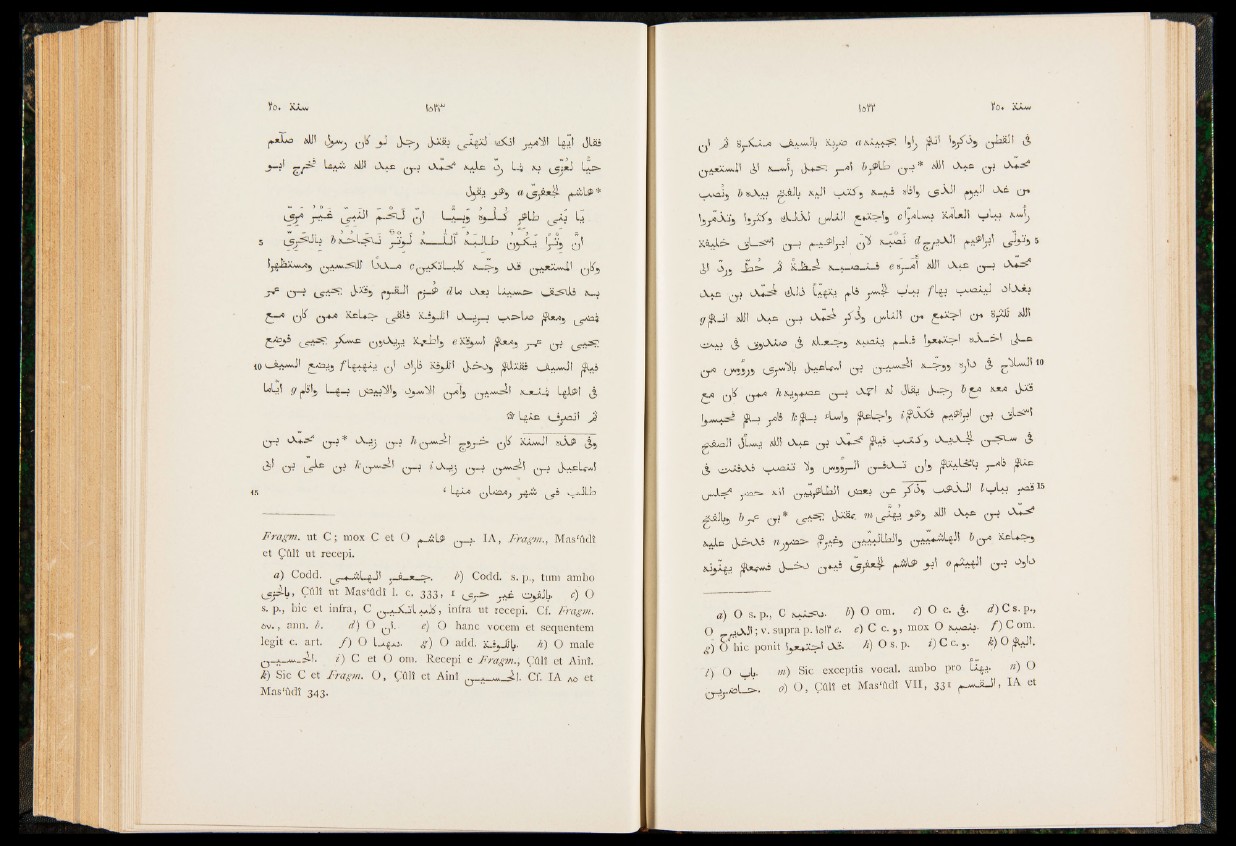 سنة ٢٥٠ ١٥٢٢
في القطن وذكروا انهم راوا بجبينه a ضربة بالسيف منكرة ثم ان
محمّد بن عبد الله *بن طاهر b امر بحمل رأسه الى المستعين
من غد اليوم الذى وافاه فيه وكتب اليه بالفتح بيده b ونصب
رأسه بباب العامّة بسامرّا c واجتمع الناس لذلك وكثروا وتذمّروا
5 وتولّى ابرهيم الديزج d نَصْبه لانّ ابرهيم بن اسحاق خليفة
محمّد بن عبد الله امره e فنصبه لحظة ثم حُطّ وردّ الى
بغداد لينصب بها f بباب الجسر فلم يتهيّأ ذلك لمحمّد بن عبد
الله لكثرة من اجتمع من الناس وذُكر لمحمّد بن عبد الله انهم g
على اخذه اجتمعوا فلم ينصبه وجعله في صندوق في بيت
10 السلاح في داره ووجّه الحسين بن اسماعيل بالاسرى ورووس من
قتل معه مع b رجل يقال له احمد بن عصمويه h ممن كان مع
اسحاق بن ابرهيم فكدّهم i واجاعهم واساء بهم k فامر بهم فحبسوا
في سجن الجديد وكتب فيهم محمّد بن عبد الله يسأل الصفح
عنهم فامر بتخليتهم وان تدفن الرووس ولا تنصب فدفنت في
15 قصر بباب l الذهب وذكر عن بعض الطاهريّين انه حضر مجلس
محمّد بن عبد الله وهو يُهَنّى m بمقتل يحيى *بن عمر b وبالفتح
وجماعة من b الهاشميّين والطالبيّين وغيرهم حضور n فدخل عليه
داود بن الهيثم o ابو هاشم الجعفرىّ فيمن دخل فسمعهم يهنونه
a) O s. p., C بحنينه. b) O om. c) O c. في. d) C s. p.,
O الديرج; v. supra p. ١٥١٢ c. e) C c. و, mox O بنصبه. f) C om.
g) O hic ponit قد اجتمعوا. h) O s. p. i) C c. و. k) O اليهم.
l) O باب. m) Sic exceptis vocal. ambo pro يهنّأ. n) O
حاضرين. o) O, Çûlî et Mas‘ûdî VII, 331 القسم, IA et
سنة ٢٥٠ ١٥٢٣
فقال ايّها الامير انك لتهنّى بقتل رجل لو كان رسول الله صلّعم
حيّا لعُزّى به فما ردّ عليه محمّد بن عبد الله شيئا فخرج ابو
*هاشم الجعفرىّ a وهو يقول
يَا بَنِى طاهرٍ كُلُوهُ وَبِيًّا انّ لَحْمَ النَبِىِّ غَيْرُ مَرِىِّ
5 انّ وِتْرًا يَكُونُ طالِبَهُ اللّهُ لَوِتْرٌ نَجَاحُهُ b بالحَرِىِّ
وكان المستعين قد وجّه كلباتكين c مددًا للحسين ومستظهرا
به فلحق حسينا بعد ما d هزم القوم وقتل يحيى بن عمر
فمضى ومعهم صاحب بريد الكوفة فلقى جماعة ممن كان مع
يحيى بن عمر ومعهم اسوقة e واطعمة يريدون عسكر يحيى فوضع
10 فيهم السيف فقتلهم ودخل الكوفة فاراد ان ينهبها f ويضع السيف
في اهلها فمنعه الحسين وآمن الاسود والابيض بها واقام g ايّاما
ثم انصرف عنها ۞
وفى هذه السنة كان خروج الحسن h بن زيد *بن محمّد بن
اسماعيل بن الحسن بن زيد i بن الحسن k بن علىّ بن ابى
15 طالب في شهر رمضان منها،
Fragm. ut C; mox C et O بن هاشم. IA, Fragm., Mas‘ûdî
et Çûlî ut recepi.
a) Codd. جعفر الهاشمى. b) Codd. s. p., tum ambo
بالجرى, Çûlî ut Mas‘ûdî l. c. 333, 1 بالفوت غير حرى. c) O
s. p., hic et infra, C, infra ut recepi. Cf. Fragm.
٥٧٠, ann. b. d) O ان. e) O hanc vocem et sequentem
legit c. art. f) O. g) O add. بالكوفة. h) O male
الحسين. i) C et O om. Recepi e Fragm., Çûlî et Ainî.
k) Sic C et Fragm. O, Çûlî et Ainî الحسين. Cf. IA ٨٥ et
Mas‘ûdî 343.